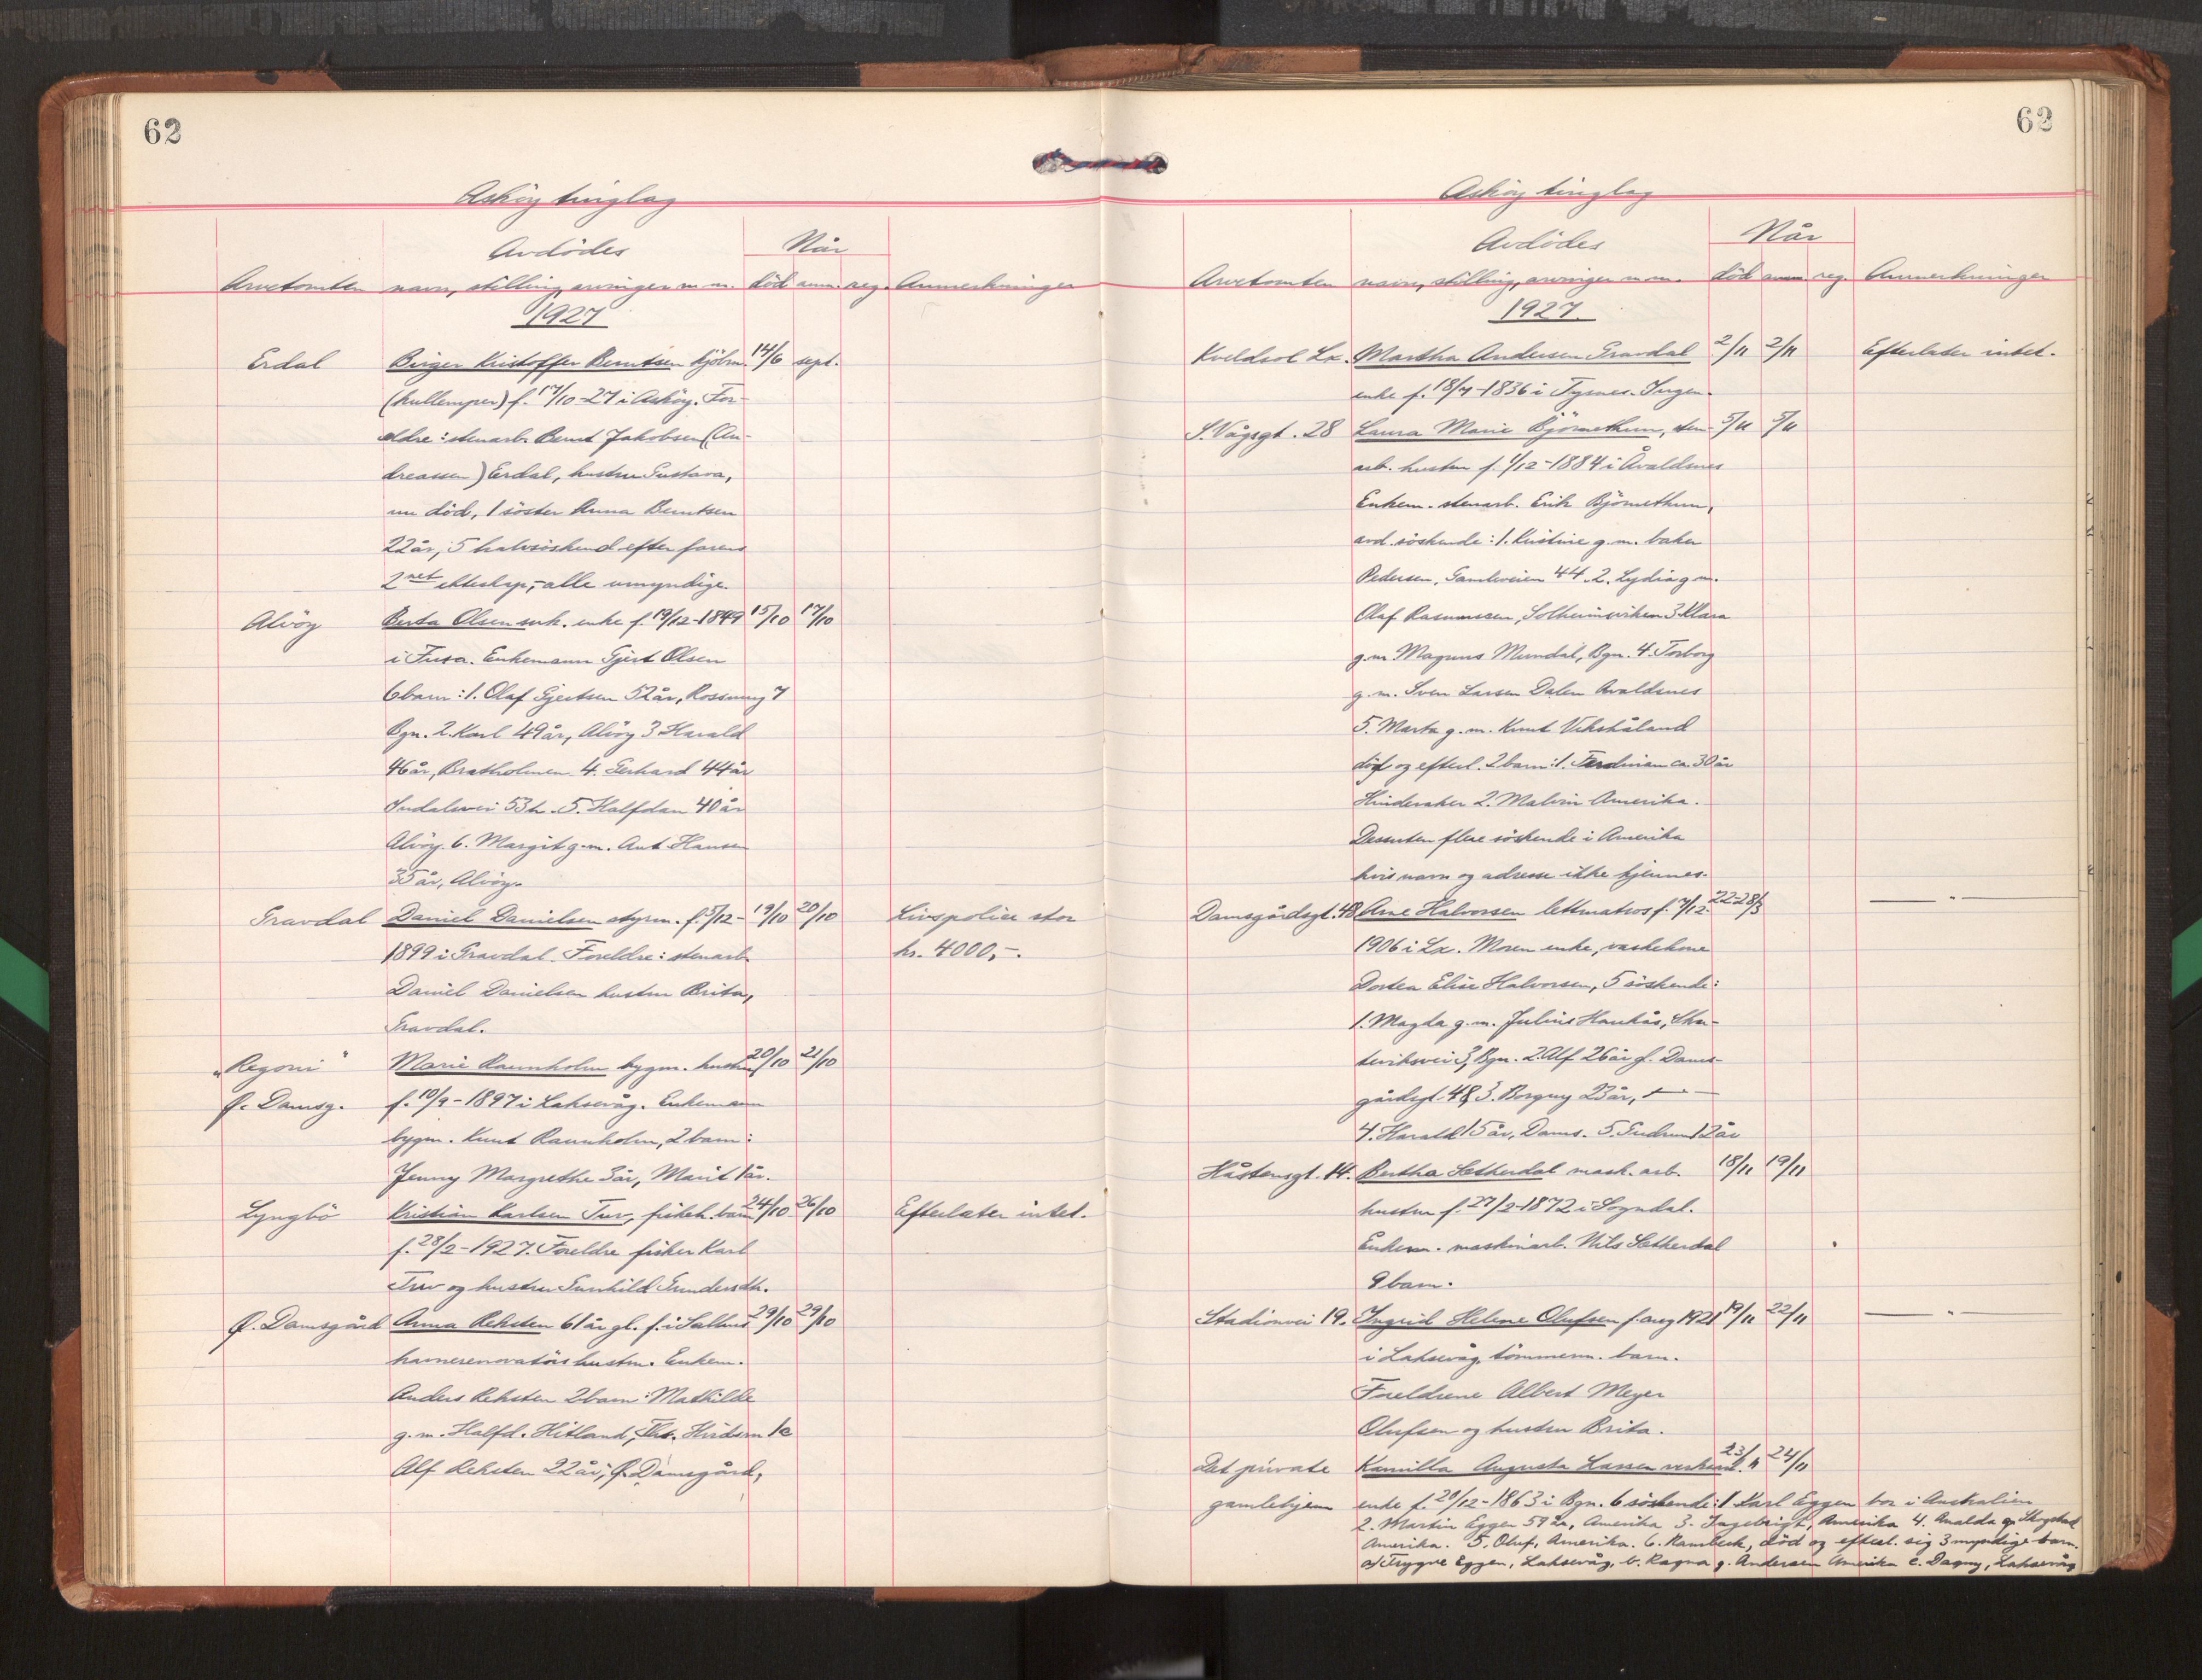 62
Askøy tinglag
Avdødes
Når
Arvetomten navn, stilling, arvinger m. m. död anm. reg. Anmerkninger
1927
Erdal Birger Kristoffer Berntsen kjölm. 14/6 sept.
(kullemper) f. 17/10-27 i Askøy. For-
eldre: stenarb. Bernt Jakobsen (An-
dreassen) Erdal, hustru Gustava,
nu död, 1 söster Anna Berntsen
22 år, 5 halvsöskend efter farens
2net ekteskap,- alle umyndige.
Alvöy Berta Olsen enke f. 19/12-1849 15/10 17/10
i Fusa. Enkemann Gjert Olsen
6 barn: 1. Olaf Gjertsen 52 år, 7
Bgn. 2. Karl 49 år, Alvöy 3 Harald
46 år, Bratholmen 4. Gerhard 44 år
53 b. 5. Halfdan 40 år
Alvöy. 6. Margit g.m. Ant. Hansen
35 år, Alvöy.
Gravdal Daniel Danielsen styrm. f. 5/12- 19/10 20/10 Livspolice stor
1899 i Gravdal. Foreldre: stenarb. kr. 4000,-.
Daniel Danielsen hustru Brita,
Gravdal.
"Regoni" Marie Raunholm bygm. hustru 20/10 21/10
Ø. Damsg. f. 10/9-1897 i Laksevåg. Enkemann
bygm. Knut Raunholm, 2 barn:
Jenny Margrethe 3 år, Marit 1 år.
Lyngbö Kristian Karlsen Tuv, fiskeh. barn 24/10 26/10 Efterlater intet.
f. 28/2-1927. Foreldre fisker Karl
Tuv og hustru Gunhild Gundersdtr.
Ø. Damsgård Anna Reksten 61 år gl. f. i Salhus 29/10 29/10
havnerenovatörs hustru. Enkem.
Anders Reksten 2 barn: Mathilde
g.m. Halfd. Hitland,
Alf Reksten 22 år, Ø. Damsgård.
62
Askøy tinglag
Avdödes
Når
Arvetomten navn, stilling, arvinger m. m. död anm. reg. Anmerkninger
1927.
Kveldsol Lx. Martha Andersen Gravdal 2/11 2/11 Efterlater intet.
enke f. 18/7-1836 i Tysnes. Ingen.
S. Vågsgt. 28 Laura Marie Björnethun, sten- 5/11 5/11
arb. hustru f. 1/12-1884 i Avaldsnes
Enkem. stenarb. Erik Björnethun,
avd. söskende: 1. Kristine g.m. baker
Pedersen, Gamleveien 44. 2. Lydia g.m.
Olaf Rasmussen, Solheimsviken 3 Klara
g.m. Magnus Mundal, Bgn. 4. Torborg
g.m. Sven Larsen Dalen Avaldsnes
5. Marta g.m. Knut Vikshåland
död og efterl. 2 barn: 1. Ferdinan ca. 30 år
Hinderaker 2. Malvin Amerika.
Dessuten flere söskende i Amerika
hvis navn og adresse ikke kjennes.
Damsgårdsgt. 48 Arne Halvorsen lettmatros f. 7/12- 22-28/3 — " —
1906 i Lx. Moren enke, vaskekone
Dortea Elise Halvorsen, 5 söskende:
1. Magda g.m. Julius Haukås, Sku-
teviksvei 3, Bgn. 2. Alf 26 år gl. Dams-
gårdsgt. 48, 3. Borgny 23 år, — " —
4. Harald 15 år, Dams. 5. Gudrun 12 år
Håstensgt. 14. Bertha Sætherdal mask. arb. 18/11 19/11
hustru f. 27/2-1872 i Sogndal.
Enkem. maskinarb. Nils Sætherdal
9 barn.
Stadionvei 19. Ingrid Helene Olufsen f. aug 1921 19/11 22/11 — " —
i Laksevåg, tömmerm. barn.
Foreldrene Albert Meyer
Olufsen og hustru Brita.
Det private Kamilla Augusta Larsen 23/11 24/11
gamlehjem enke f. 20/12-1863 i Bgn. 6 söskende: 1 Karl Eggen bor i Australien
2. Martin Eggen 59 år, Amerika 3. Ingebrigt, Amerika 4. Analda
Amerika. 5. Oluf, Amerika. 6. død og efterl. sig 3 myndige barn.
a) Trygve Eggen, Laksevåg, b. Ragna g. Andersen Amerika c. Dagny, Laksevåg